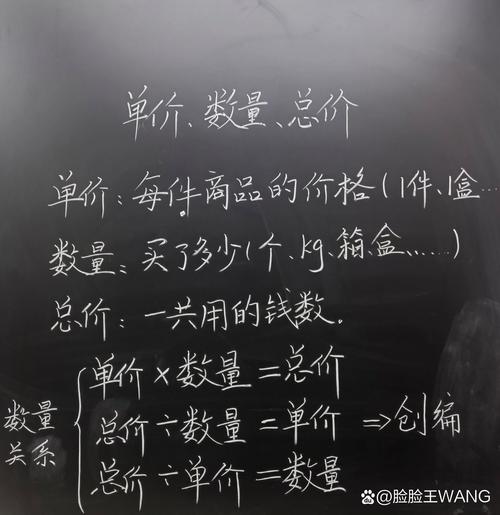 单价、数量、总价
单价:每件商品的价格(1件、1盒...
数量:买了多少(个、kg、箱、盒......)
总价:一共用的钱数。
单价×数量=总价
数量关系 总价÷数量=单价 ⇒创编
总价÷单价=数量
脸脸王WANG